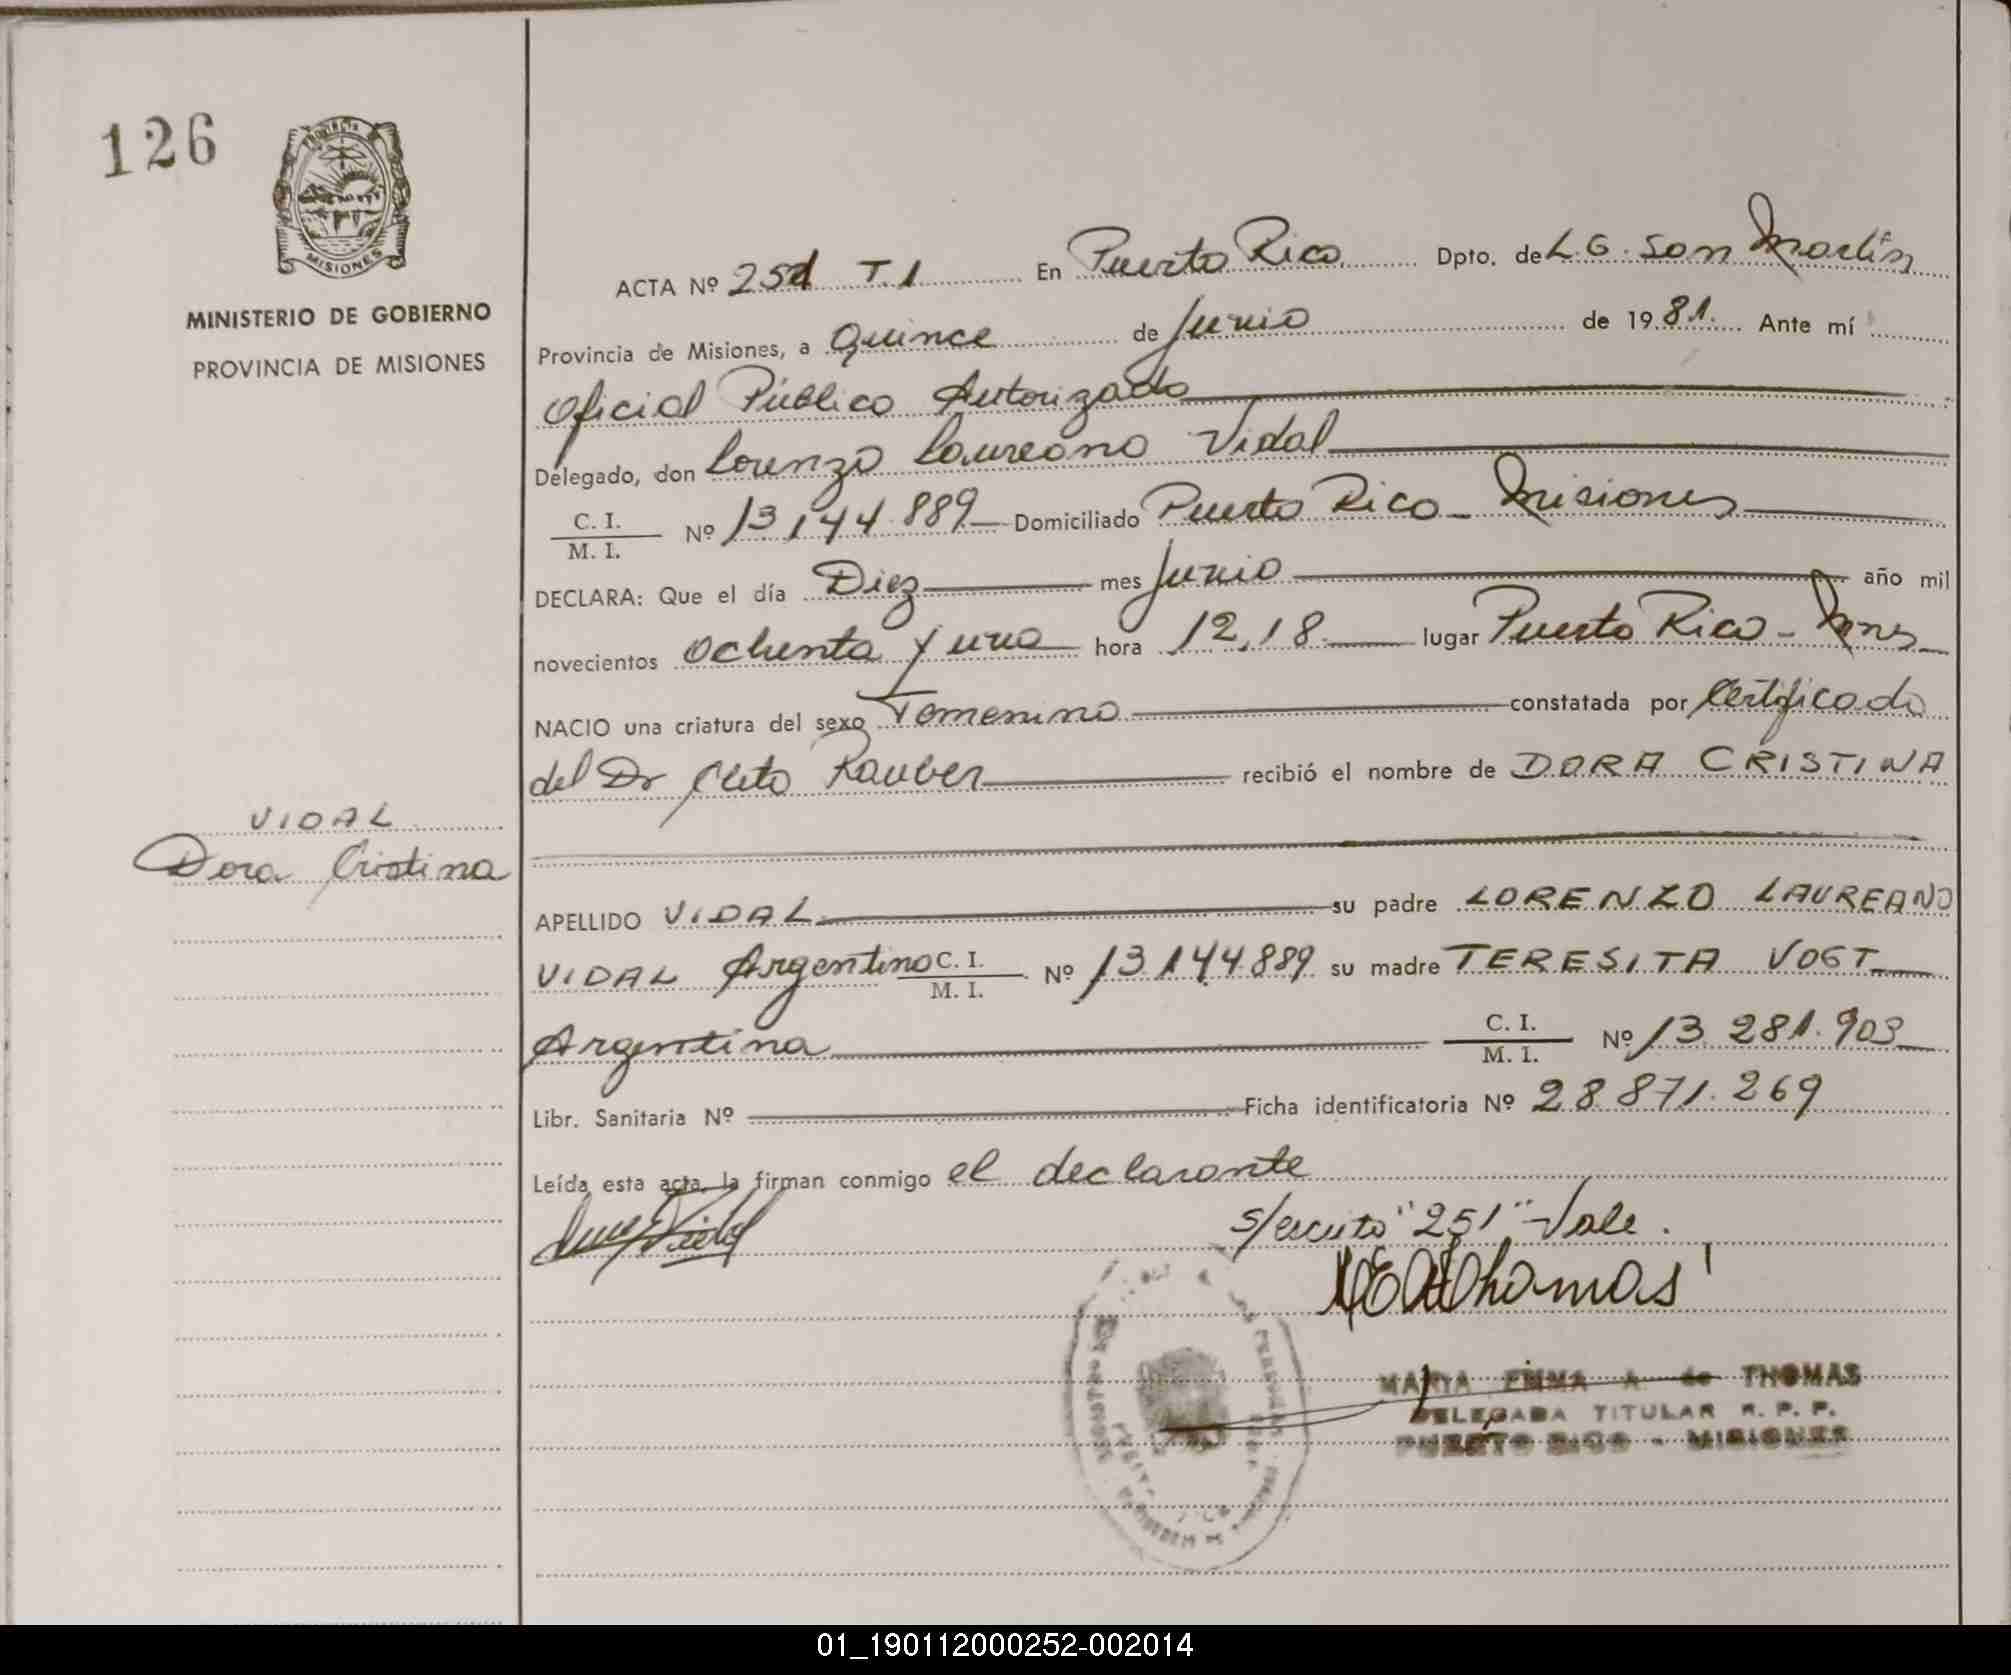 126
PROVINCIA
MISIONES
MINISTERIO DE GOBIERNO
PROVINCIA DE MISIONES
ACTA Nº 251 T.1 En Puerto Rico Dpto. de L.G. San Martín
Provincia de Misiones, a Quince de Junio de 1981. Ante mí
Oficial Público Autorizado
Delegado, don Lorenzo Laureano Vidal
C. I.
M. I. Nº 13.144.889 Domiciliado Puerto Rico - Misiones
DECLARA: Que el día Diez mes Junio año mil
novecientos ochenta y uno hora 12,18 lugar Puerto Rico - Mnes
NACIO una criatura del sexo Femenino constatada por Certificado
del Dr Cleto Rauber recibió el nombre de DORA CRISTINA
VIDAL
Dora Cristina
APELLIDO VIDAL su padre LORENZO LAUREANO
VIDAL Argentino C. I.
M. I. Nº 13.144.889 su madre TERESITA VOGT
Argentina C. I.
M. I. Nº 13.281.903
Libr. Sanitaria Nº Ficha identificatoria Nº 28.871.269
Leída esta acta, la firman conmigo el declarante
s/escrito "251" Vale.
MEAThomas
MARIA EMMA A. de THOMAS
DELEGADA TITULAR R. P. P.
PUERTO RICO - MISIONES
01_190112000252-002014